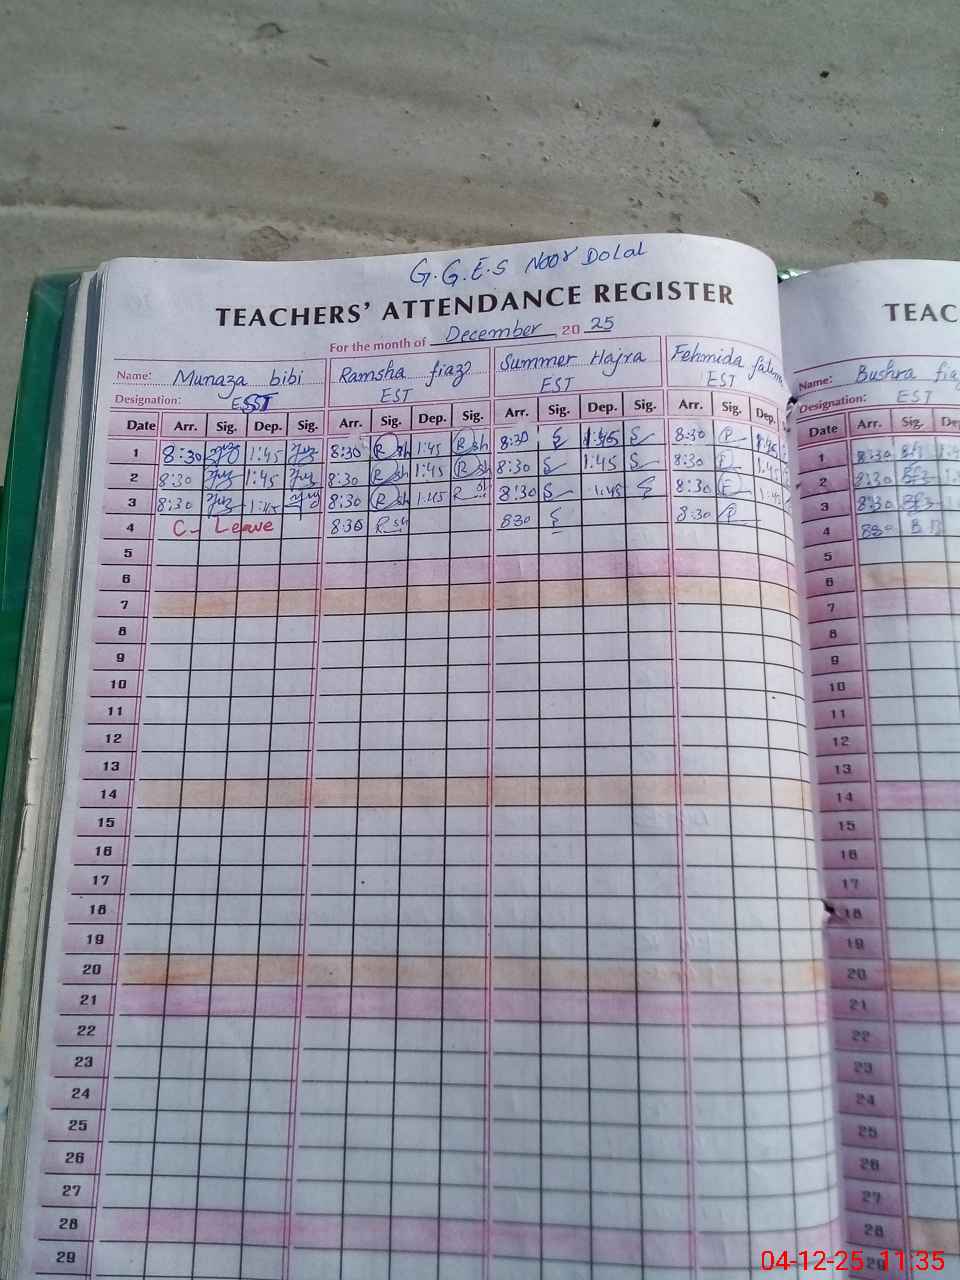 G.G.E.S Noor Dolal
TEACHERS' ATTENDANCE REGISTER
TEAC
For the month of December 2025
Name: Munaza bibi Ramsha fiaz Summer Hajra Fehmida fatima
Designation: ESST EST EST EST
Name: Bushra fiaz
Designation: EST
Date Arr. Sig. Dep. Sig. Arr. Sig. Dep. Sig. Arr. Sig. Dep. Sig. Arr. Sig. Dep.
1 8:30 1:45 8:30 Rsh 1:45 Rsh 8:30 S 1:45 S 8:30 F 1:45
2 8:30 1:45 8:30 Rsh 1:45 Rsh 8:30 S 1:45 S 8:30 F 1:45
3 8:30 1:45 8:30 Rsh 1:45 Rsh 8:30 S 1:45 S 8:30 F 1:45
4 C- Leave 8:30 Rsh 8:30 S 8:30 F
5
6
7
8
9
10
11
12
13
14
15
16
17
18
19
20
21
22
23
24
25
26
27
28
29
Date Arr. Sig. De
1 8:30
2 8:30
3 8:30
4 8:30
5
6
7
8
9
10
11
12
13
14
15
16
17
18
19
20
21
22
23
24
25
26
27
28
29
04-12-25 11:35